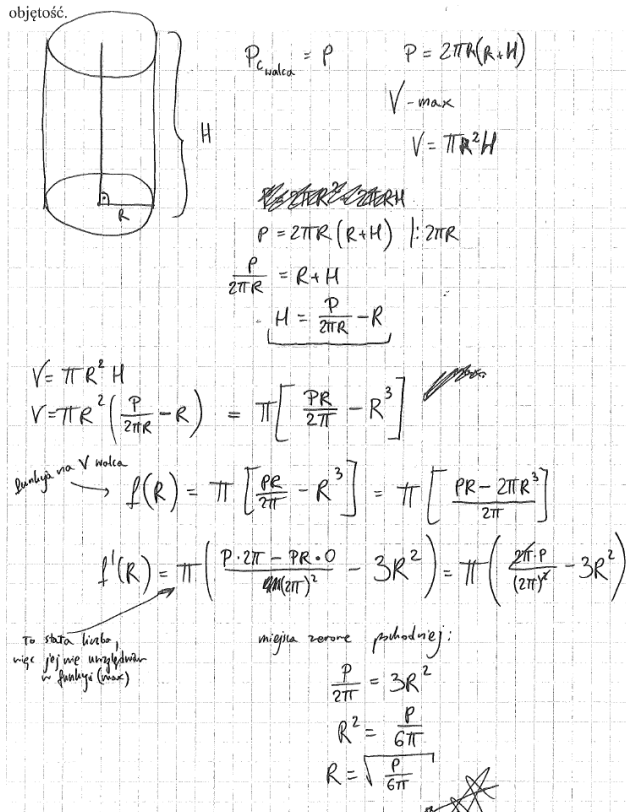 objętość.
P_c walca = P    P = 2πR(R+H)
V - max
V = πR²H
H
R
P = 2πR(R+H) |: 2πR
P/(2πR) = R+H
H = P/(2πR) - R
V = πR²H
V = πR²(P/(2πR) - R) = π[PR/(2π) - R³]
funkcja na V walca
f(R) = π[PR/(2π) - R³] = π[(PR - 2πR³)/(2π)]
f'(R) = π((P·2π - PR·0)/(2π)² - 3R²) = π((2π·P)/(2π)² - 3R²)
To stała liczba,
więc jej nie uwzględniam
w funkcji (max)
miejsca zerowe pochodnej:
P/(2π) = 3R²
R² = P/(6π)
R = √(P/(6π))